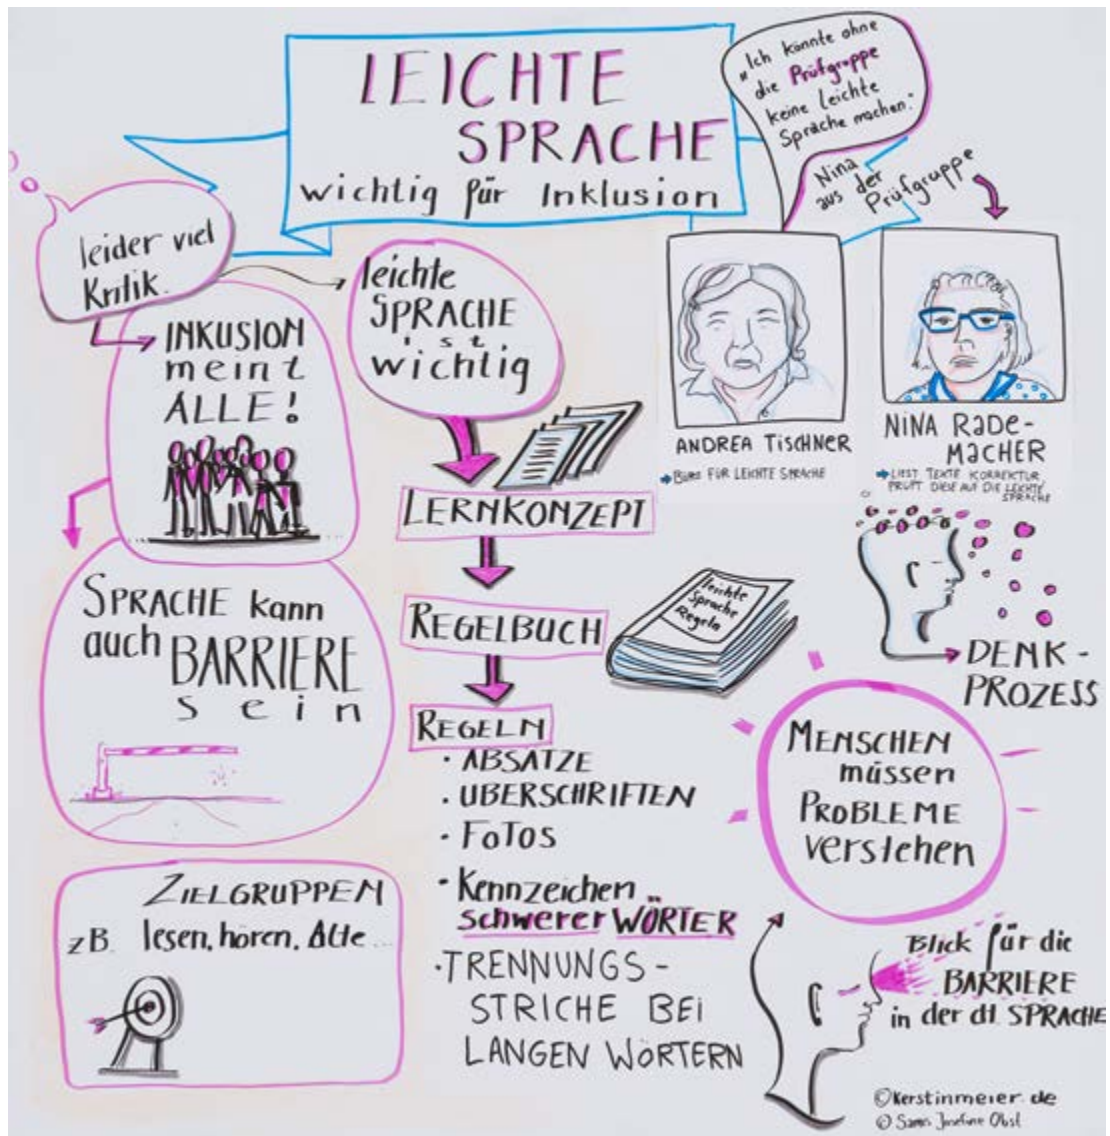 LEICHTE
SPRACHE
wichtig für Inklusion
„Ich könnte ohne
die Prüfgruppe
keine leichte
Sprache machen."
Nina
aus der
Prüfgruppe
leider viel
Kritik.
leichte
SPRACHE
ist
wichtig
INKUSION
meint
ALLE!
ANDREA TISCHNER
BÜRO FÜR LEICHTE SPRACHE
NINA RADE-
MACHER
LIEST TEXTE KORREKTUR,
PRÜFT DIESE AUF DIE LEICHTE
SPRACHE
LERNKONZEPT
SPRACHE kann
auch BARRIERE
sein
REGELBUCH
leichte
Sprache
Regeln
DENK-
PROZESS
REGELN
· ABSÄTZE
· ÜBERSCHRIFTEN
· FOTOS
· Kennzeichen
schwerer WÖRTER
· TRENNUNGS-
STRICHE BEI
LANGEN WÖRTERN
MENSCHEN
müssen
PROBLEME
verstehen
ZIELGRUPPEN
zB. lesen, hören, Alte...
Blick für die
BARRIERE
in der dt. SPRACHE
©Kerstinmeier.de
© Josefine Obst